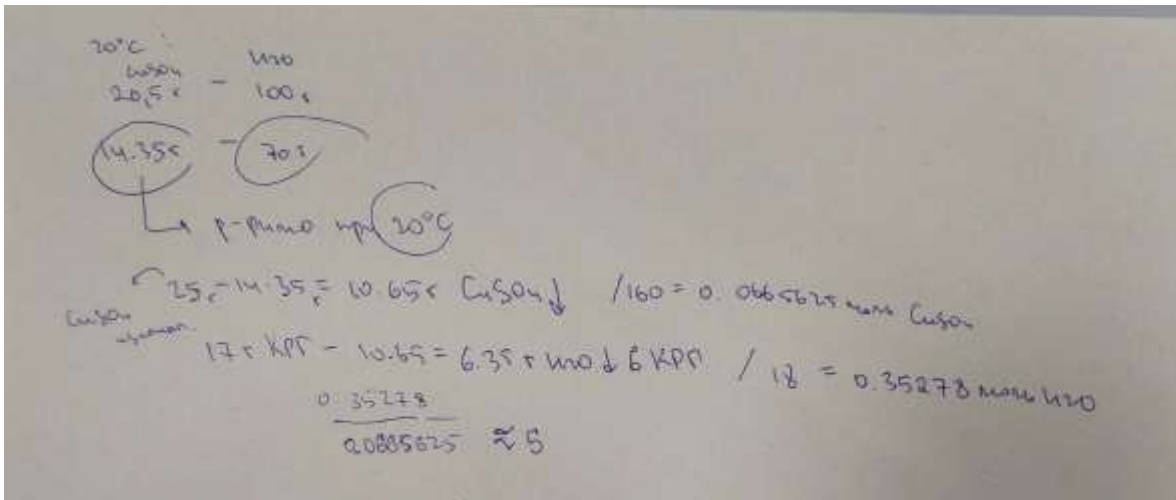 20°C
CuSO4 – H2O
20,5 г 100 г
14.35 г – 70 г
р-римо при 20°C
25 г - 14.35 г = 10.65 г CuSO4↓ /160 = 0.0665625 моль CuSO4
CuSO4
17 г КРГ - 10.65 = 6.35 г H2O ↓ в КРГ / 18 = 0.35278 моль H2O
0.35278
0.0665625 ≈ 5